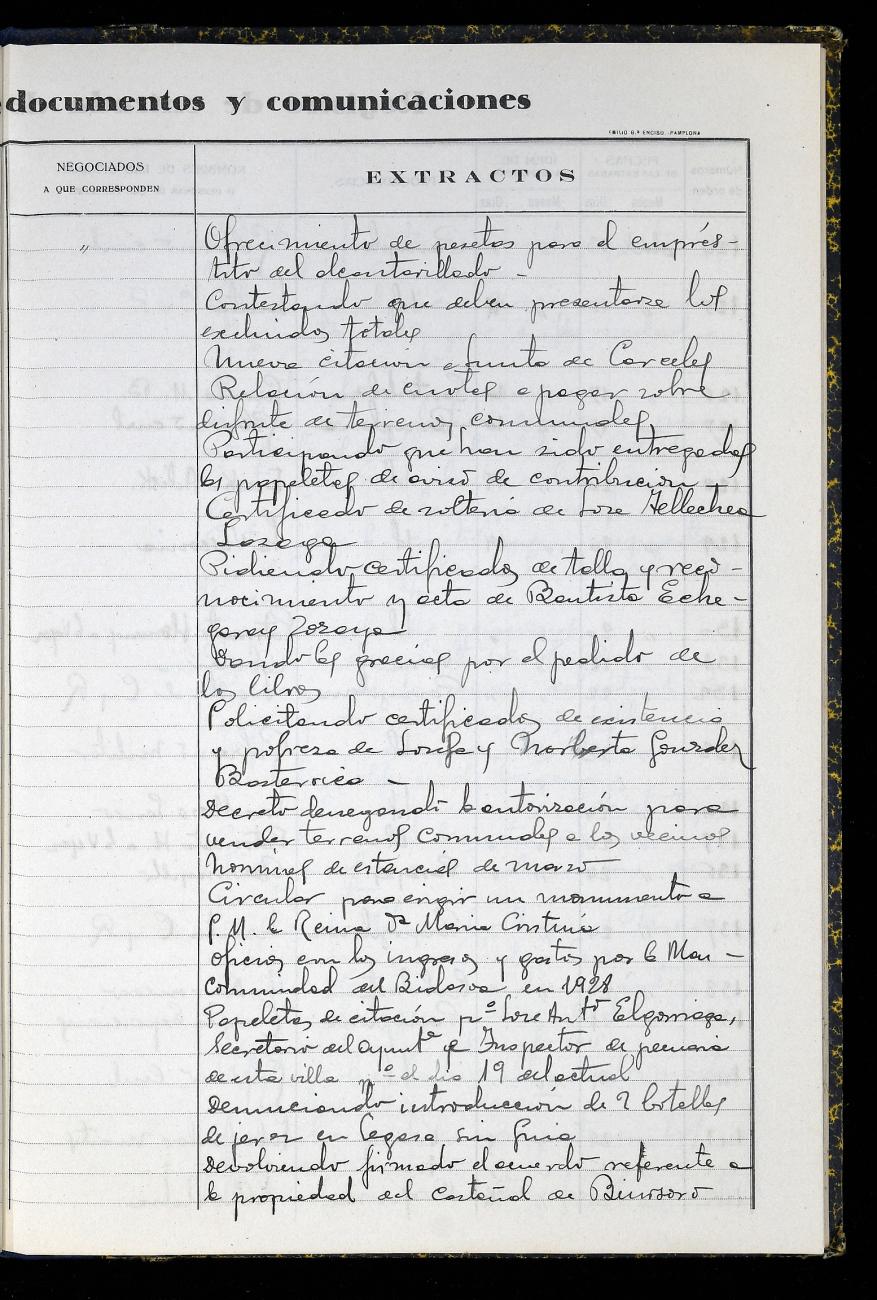 documentos y comunicaciones
EMILIO G.ª ENCISO.-PAMPLONA
NEGOCIADOS
A QUE CORRESPONDEN
EXTRACTOS
"
Ofrecimiento de pesetas para el emprés-
tito del alcantarillado -
Contestando que deben presentarse los
excluidos totales
Nueva citacion a Junta de Carceles
Relación de cuotas a pagar sobre
disfrute de terrenos comunales
Participando que han sido entregadas
las papeletas de aviso de contribucion -
Certificado de solteria de Jose Tellechea
Lozaga
Pidiendo certificados de talla y reco-
nocimiento y acta de Bautista Eche-
garay Zozaya
Dando las gracias por el pedido de
los libros
Solicitando certificados de existencia
y pobreza de Josefa y Norberta Gonzalez
Basterrica -
Decreto denegando la autorización para
vender terrenos comunales a los vecinos
Nominas de estancias de marzo
Circular para erigir un monumento a
S. M. la Reina Dª Maria Cristina
Oficios con los ingresos y gastos por la Man-
comunidad del Bidasoa en 1928
Papeletas de citación pª Jose Antº Elgorriaga,
Secretario del Ayuntº e Inspector de pecuaria
de esta villa pª el dia 19 del actual
Denunciando introducción de 2 botellas
de jerez en Legasa sin Guia
Devolviendo firmado el acuerdo referente a
la propiedad del castañal de